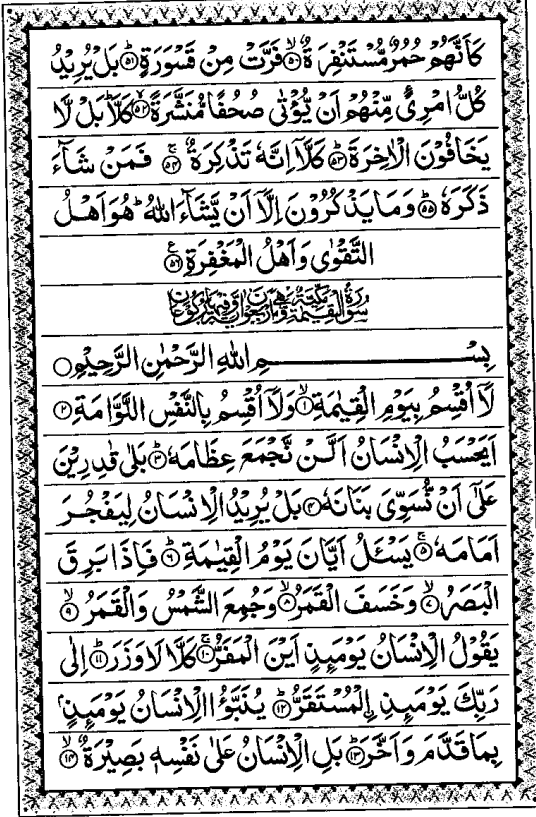 كَاَنَّهُمْ حُمُرٌ مُّسْتَنْفِرَةٌ ۙ﴿۵۰﴾ فَرَّتْ مِنْ قَسْوَرَةٍ ؕ﴿۵۱﴾ بَلْ يُرِيْدُ
كُلُّ امْرِیًٴ مِّنْهُمْ اَنْ يُّؤْتٰى صُحُفًا مُّنَشَّرَةً ۙ﴿۵۲﴾ كَلَّا ؕ بَلْ لَّا
يَخَافُوْنَ الْاٰخِرَةَ ؕ﴿۵۳﴾ كَلَّاۤ اِنَّهٗ تَذْكِرَةٌ ۚ﴿۵۴﴾ فَمَنْ شَآءَ
ذَكَرَهٗ ؕ﴿۵۵﴾ وَمَا يَذْكُرُوْنَ اِلَّاۤ اَنْ يَّشَآءَ اللّٰهُ ؕ هُوَ اَهْلُ
التَّقْوٰى وَاَهْلُ الْمَغْفِرَةِ ﴿۵۶﴾ ع
سُوْرَةُ الْقِيٰمَةِ مَكِّيَّةٌ وَّهِىَ اَرْبَعُوْنَ اٰيَةً وَّفِيْهَا رُكُوْعَانِ
بِسْمِ اللّٰهِ الرَّحْمٰنِ الرَّحِيْمِ ○
لَاۤ اُقْسِمُ بِيَوْمِ الْقِيٰمَةِ ۙ﴿۱﴾ وَلَاۤ اُقْسِمُ بِالنَّفْسِ اللَّوَّامَةِ ؕ﴿۲﴾
اَيَحْسَبُ الْاِنْسَانُ اَلَّنْ نَّجْمَعَ عِظَامَهٗ ؕ﴿۳﴾ بَلٰى قٰدِرِيْنَ
عَلٰۤى اَنْ نُّسَوِّىَ بَنَانَهٗ ﴿۴﴾ بَلْ يُرِيْدُ الْاِنْسَانُ لِيَفْجُرَ
اَمَامَهٗ ۚ﴿۵﴾ يَسْـَٔلُ اَيَّانَ يَوْمُ الْقِيٰمَةِ ؕ﴿۶﴾ فَاِذَا بَرِقَ
الْبَصَرُ ۙ﴿۷﴾ وَخَسَفَ الْقَمَرُ ۙ﴿۸﴾ وَجُمِعَ الشَّمْسُ وَالْقَمَرُ ۙ﴿۹﴾
يَقُوْلُ الْاِنْسَانُ يَوْمَئِذٍ اَيْنَ الْمَفَرُّ ۚ﴿۱۰﴾ كَلَّا لَا وَزَرَ ؕ﴿۱۱﴾ اِلٰى
رَبِّكَ يَوْمَئِذِ ِۨالْمُسْتَقَرُّ ؕ﴿۱۲﴾ يُنَبَّؤُا الْاِنْسَانُ يَوْمَئِذٍۭ
بِمَا قَدَّمَ وَاَخَّرَ ؕ﴿۱۳﴾ بَلِ الْاِنْسَانُ عَلٰى نَفْسِهٖ بَصِيْرَةٌ ۙ﴿۱۴﴾